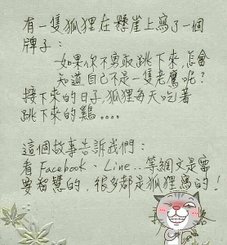 有一隻狐狸在懸崖上寫了一個
牌子：
如果你不勇敢跳下來，怎會
知道自己不是一隻老鷹呢？
接下來的日子，狐狸每天吃著
跳下來的雞。。。。
這個故事告訴我們：
看Facebook、Line...等網文是需
要智慧的，很多都是狐狸寫的！